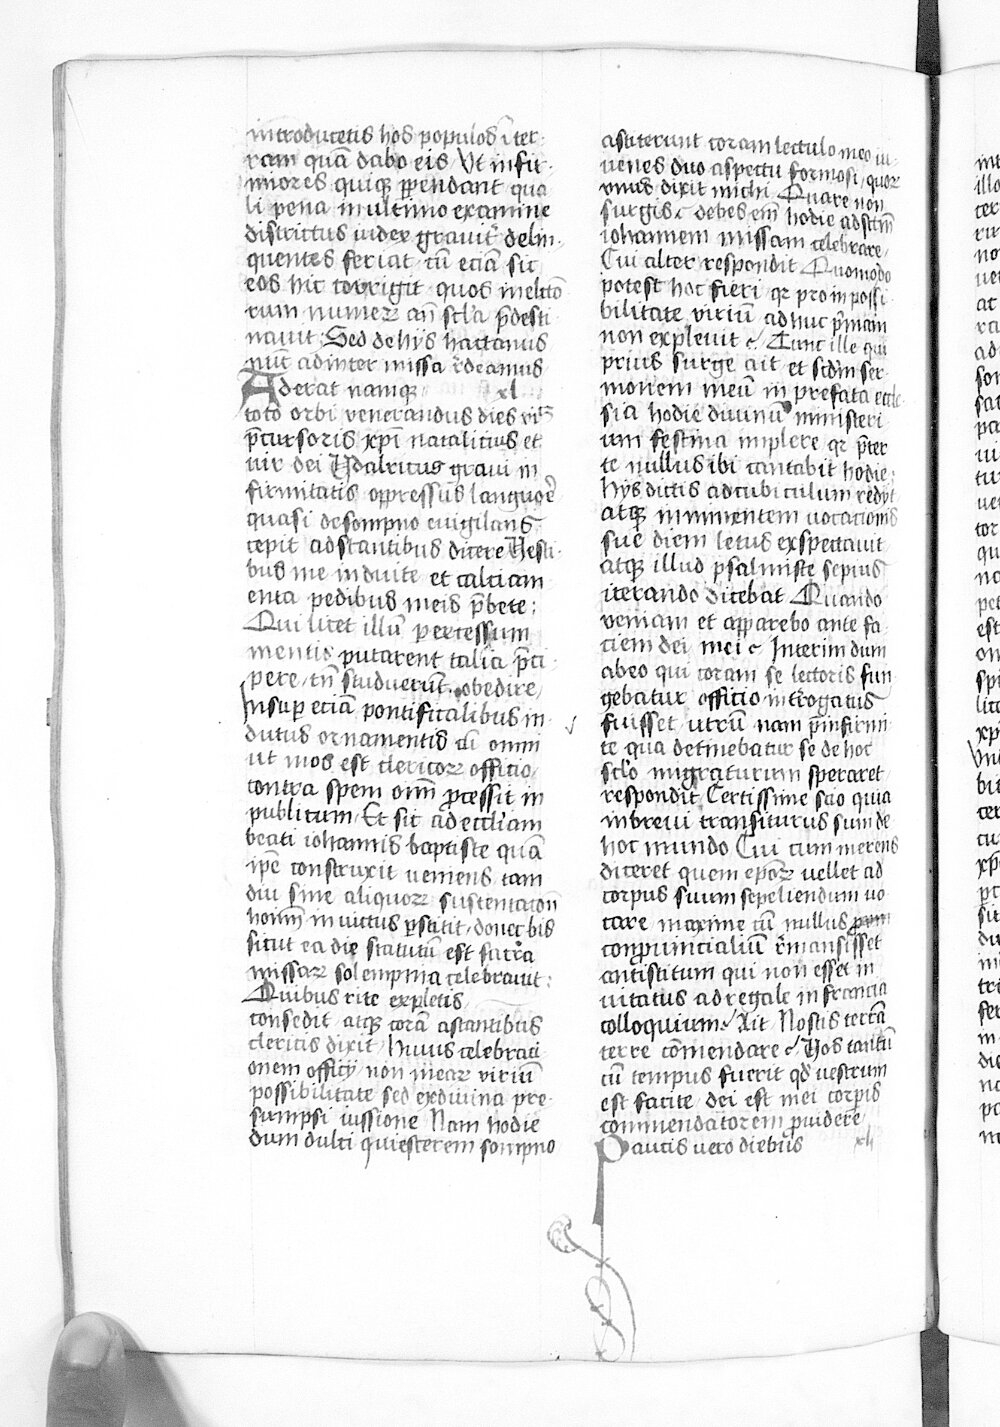 introducetis hos populos ī ter-
ram quā dabo eis Vt infir-
miores quiqꝫ ꝑpendant qua
li pena in ultimo examine
districtus iudex grauit̉ delin-
quentes feriat / cū eciā sic
eos hic corrigit quos in electo
rum numeꝝ an̄ scl̄a p̄desti
nauit / Sed de hijs hactanus
nūc ad inter missa r̄deamus
Aderat namqꝫ xl
toto orbi venerandus dies
p̄cursoris xp̄i natalitius et
uir dei Vdalricus graui in
firmitatis oppressus languore
quasi de sompno euigilans
cepit adstantibus dicere Vesti-
bus me induite et calciam
enta pedibus meis p̄bete :
Qui licet illū ꝑ excessum
mentis putarent talia p̄ci
pere / tn̄ studuerūt obedire /
Insuꝑ eciā pontificalibus in-
dutus ornamentis cū omni
ut mos est clericoꝝ officio /
contra spem omn̄ ꝓcessit in
publicum / Et sic ad eccl̄iam
beati iohannis baptiste quā
ip̄e construxit ueniens tam
diu sine aliquoꝝ sustentacōn
homin̄ inuictus ꝑstitit / donec bis
sicut ea die statutū est sacra
missaꝝ solempnia celebrauit :
Quibus rite expletis /
consedit / atqꝫ corā astantibus
clericis dixit / Huius celebraci
onem officij / non meaꝝ viriū
possibilitate sed ex diuina pre-
sumpsi iussione Nam hodie
dum dulci quiescerem sompno
asti̇terunt coram lectulo meo iu-
uenes duo aspectu formosi / quoꝝ
vnus dixit michi Quare non
surgis / debes em̄ hodie ad sctm̄
iohannem missam celebrare /
Cui alter respondit Quomodo
potest hoc fieri qꝛ pro inpossi
bilitate viriū adhuc p̄mam
non expleuit / Tunc ille qui
prius surge ait / et scd̄m ser
monem meū in prefata eccle
sia hodie diuinū ministeri
um festina implere qꝛ p̄ter
te nullus ibi cantabit hodie :
Hijs dictis ad cubiculum redijt
atqꝫ imminentem uocacionis
sue diem letus exspectauit
atqꝫ illud psalmiste sepius
iterando dicebat Quando
veniam et apparebo ante fa
ciem dei mei / Interim dum
abeo qui coram se lectoris fun
gebatur officio int̉rogatus
fuisset / utrū nam p̄ infirmi
te qua detinebatur se de hoc
sclo migraturum speraret
respondit Certissime scio quia
in breui transiturus sum de
hoc mundo Cui cum merens
diceret quem ep̄oꝝ uellet ad
corpus suum sepeliendum vo
care maxime cū nullus
conprouincialiū r̄mansisset
antistitum qui non esset in
uitatus ad regale in francia
colloquium / Ait / Nostis terrā
terre cōmendare / Vos tantū
cū tempus fuerit qd̄ vestrum
est facite / dei est mei corpis
commendatorem ꝓuidere
Paucis uero diebus xli